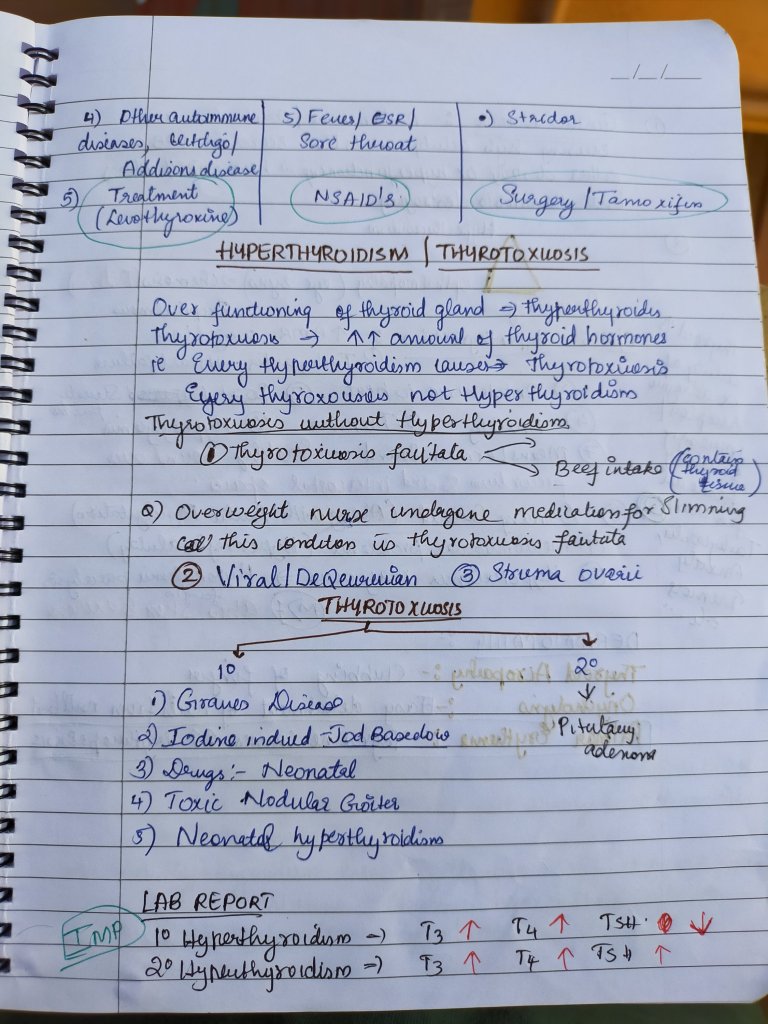 __/__/__
4) Other autoimmune | 5) Fever/ ESR/ | •) Stridor
diseases, Vertiligo/ | Sore throat
Addisons disease
5) Treatment | NSAID'S | Surgery / Tamoxifen
(Levothyroxine)
HYPERTHYROIDISM | THYROTOXUOSIS
Over functioning of thyroid gland → Hyperthyroidis
Thyrotoxuosis → ↑↑ amount of thyroid hormones
ie Every Hyperthyroidism causes→ Thyrotoxuosis
Every thyroxousis not Hyperthyroidism
Thyrotoxuosis without Hyperthyroidism
① Thyrotoxuosis faitata → Beef intake (contain thyroid tissue)
Q) Overweight nurse undergone medication for Slimming
this condition is thyrotoxuosis faitata
② Viral / DeQeurvian ③ Struma ovarii
THYROTOXUOSIS
1° 2°
1) Graves Disease
2) Iodine indued - Jod Basedow Pitutary
adenoma
3) Drugs:- Neonatal
4) Toxic Nodular Goiter
5) Neonatal hyperthyroidism
LAB REPORT
IMP 1° Hyperthyroidism → T3 ↑ T4 ↑ TSH ↓
2° Hyperthyroidism → T3 ↑ T4 ↑ TSH ↑